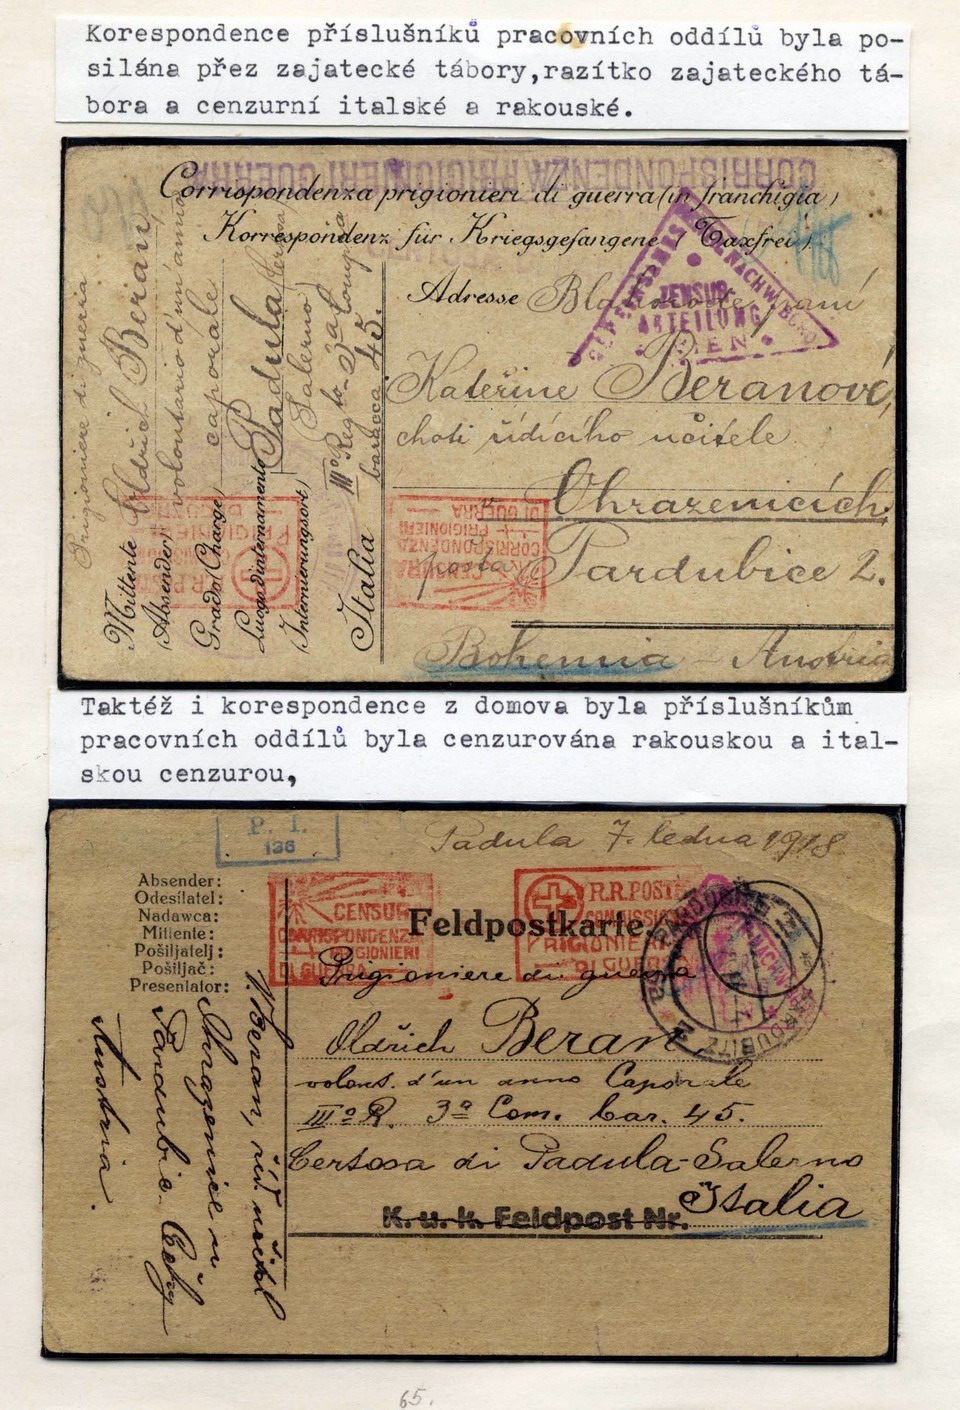 Korespondence příslušníků pracovních oddílů byla po-
silána přez zajatecké tábory,razítko zajateckého tá-
bora a cenzurní italské a rakouské.
CORRISPONDENZA PRIGIONIERI GUERRA
Corrispondenza prigionieri di guerra (in franchigia)
Korrespondenz für Kriegsgefangene (Taxfrei)
Adresse
ZENSUR
ABTEILUNG
WIEN
Kateřine Beranové,
choti řídícího učitele
Ohrazenicích
posta Pardubice 2.
Bohemia - Austria
Prigioniere di guerra
Mittente Oldřich Beran,
(Absender) volontario d'un anno
Grado (Charge) caporale
Luogo d'internamento Padula (Certosa)
(Internierungsort) (Salerno)
IIIº Reg to - 3a Compagnia
baracca 45.
Italia
CENSURA
CORRISPONDENZA
PRIGIONIERI
DI GUERRA
R.R. POSTE
PRIGIONIERI
DI GUERRA
Taktéž i korespondence z domova byla příslušníkům
pracovních oddílů byla cenzurována rakouskou a ital-
skou cenzurou,
P. I.
136
Padula 7. ledna 1918
Absender:
Odesílatel:
Nadawca:
Mittente:
Pošiljatelj:
Pošiljač:
Presentator:
CENSURA
CORRISPONDENZA
PRIGIONIERI
DI GUERRA
R.R. POSTE
COMMISSIONE
PRIGIONIERI
DI GUERRA
Feldpostkarte.
Prigioniere di guerra
Oldřich Beran
volont. d'un anno Caporale
IIIº R. 3ª Com. bar. 45.
Certosa di Padula-Salerno
Italia
K. u. k. Feldpost Nr.
V. Beran, říd. učitel
Ohrazenice u
Pardubic Čechy
Austria.
65.